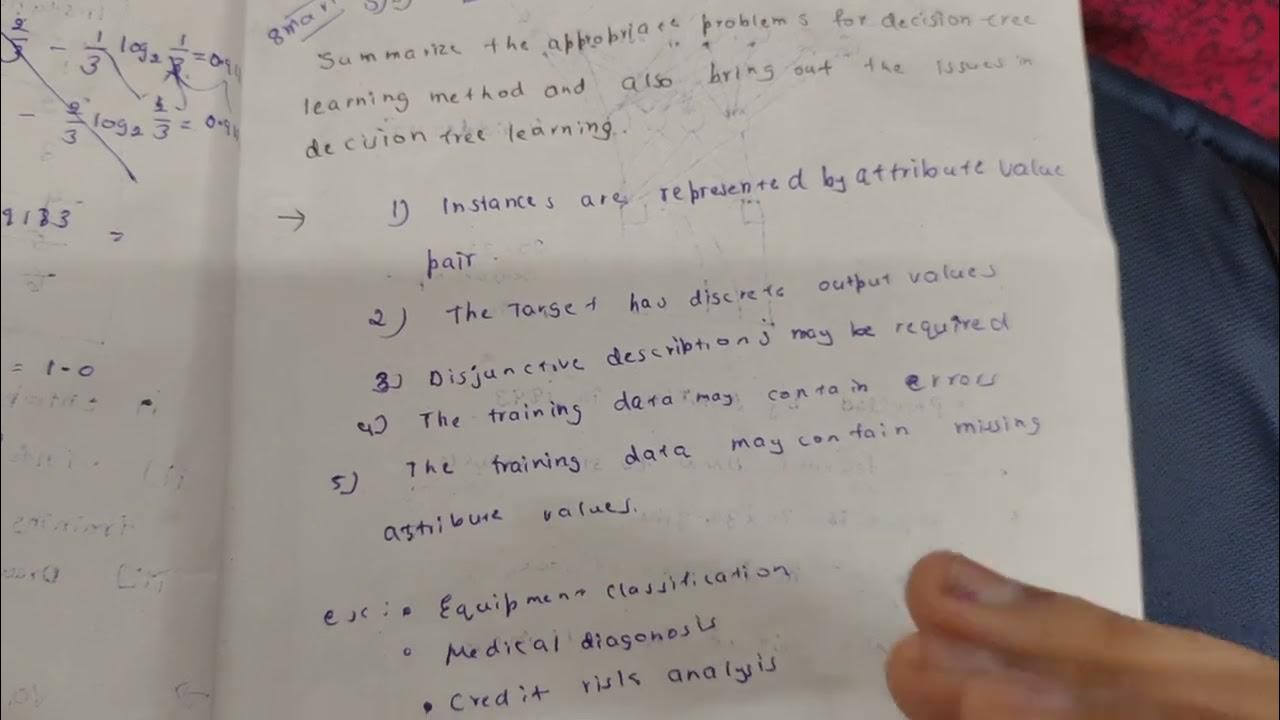 8mar
Summarize the appropriate problems for decision tree
learning method and also bring out the issues in
decision tree learning.
→ 1) Instances are represented by attribute value
pair.
2) The Target has discrete output values
3) Disjunctive descriptions may be required
4) The training data may contain errors
5) The training data may contain missing
attribute values.
ex: • Equipment classification
• Medical diagonosis
• Credit risk analysis
- 1/3 log2 1/3 = 0.9
- 2/3 log2 = 0.9
9183 =
= 1-0